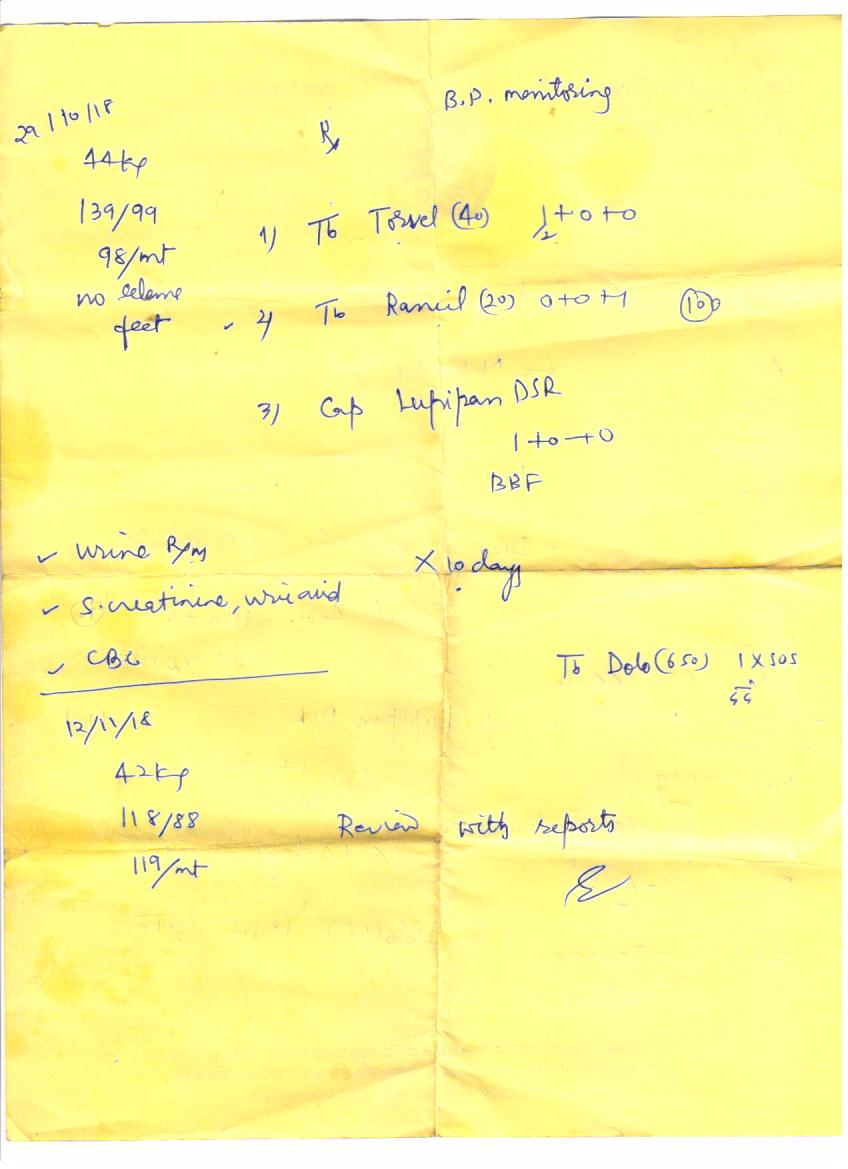 B.P. monitoring
29/10/18
Rx
44kg
139/99
98/mt
no edema
feet
1) Tb Torvel (40) 1/2+0+0
✓ 2) Tb (20) 0+0+1 (10)
3) Cap Lupipan DSR
1+0+0
BBF
✓ urine R/M
X 10 days
✓ S.creatinine, uric acid
✓ CBC
Tb Dolo (650) 1 X SOS
12/11/18
42kg
118/88
119/mt
Review with reports